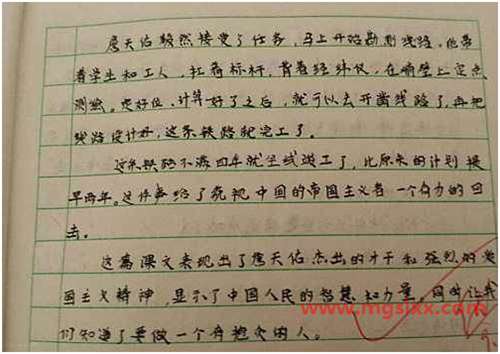 詹天佑毅然接受了任务，马上开始勘测线路，他带
着学生和工人，扛着标杆，背着经纬仪，在峭壁上定点
测绘。定好位、计算好了之后，就可以去开凿线路了，再把
线路设计好，这条铁路就完工了。
这条铁路不满四年就全线竣工了，比原来的计划提
早两年。这件事给了藐视中国的帝国主义者一个有力的回
击。
这篇课文表现出了詹天佑杰出的才干和强烈的爱
国主义精神，显示了中国人民的智慧和力量。同时让我
们知道了要做一个有抱负的人。
www.mgslxx.com